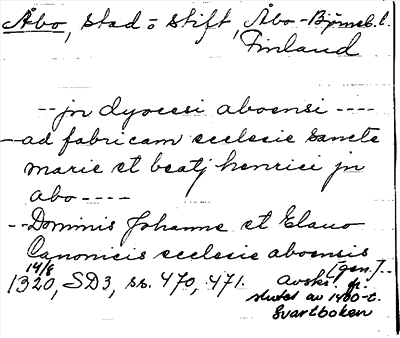 Åbo, stad o stift, Åbo-Björneb. l.
Finland
-- jn dyocesi aboensi ----
-- ad fabricam ecclesie sancte
marie et beatj henrici jn
abo ----
-- Dominis Johanne et Elauo
Canonicis ecclesie aboensis
(gen.) --
14/8
1320, SD3, ss. 470, 471. Avskr. fr.
slutet av 1400-t.
Svartboken